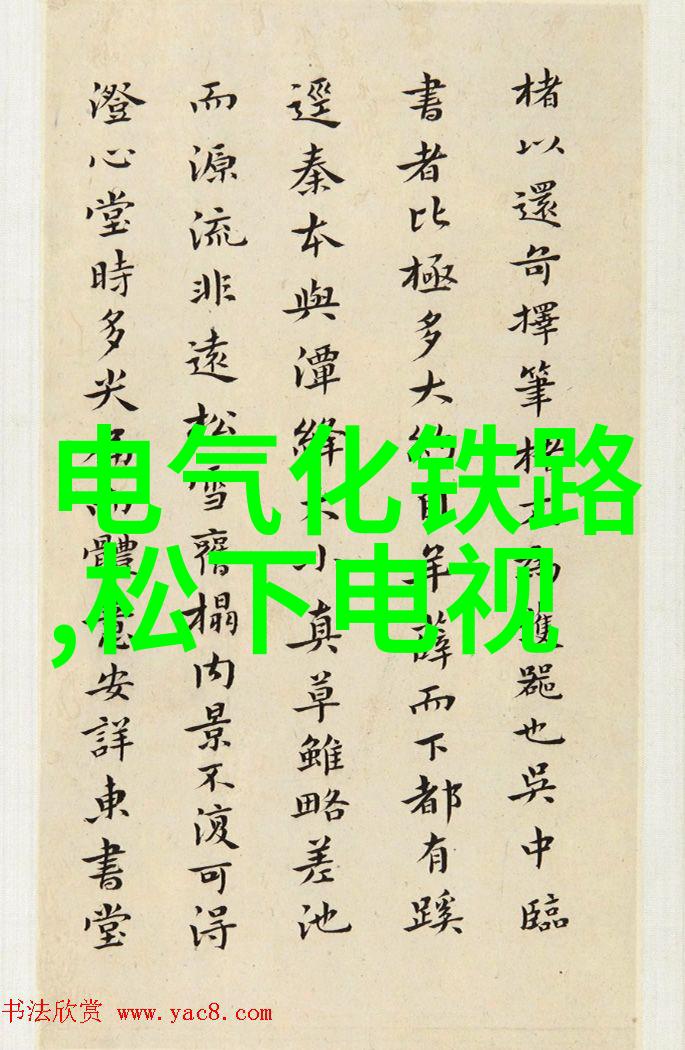 楮以還奇擇筆
器也吳中臨
書者比極多大約
年薛而下都有蹊
逕秦本與潭絳大小真草雖略差池
而源流非遠松雪齋榻內景不復可得
澄心堂時多尖
體意安詳東書堂
电气化铁路
,松下电视
书法欣赏 www.yac8.com